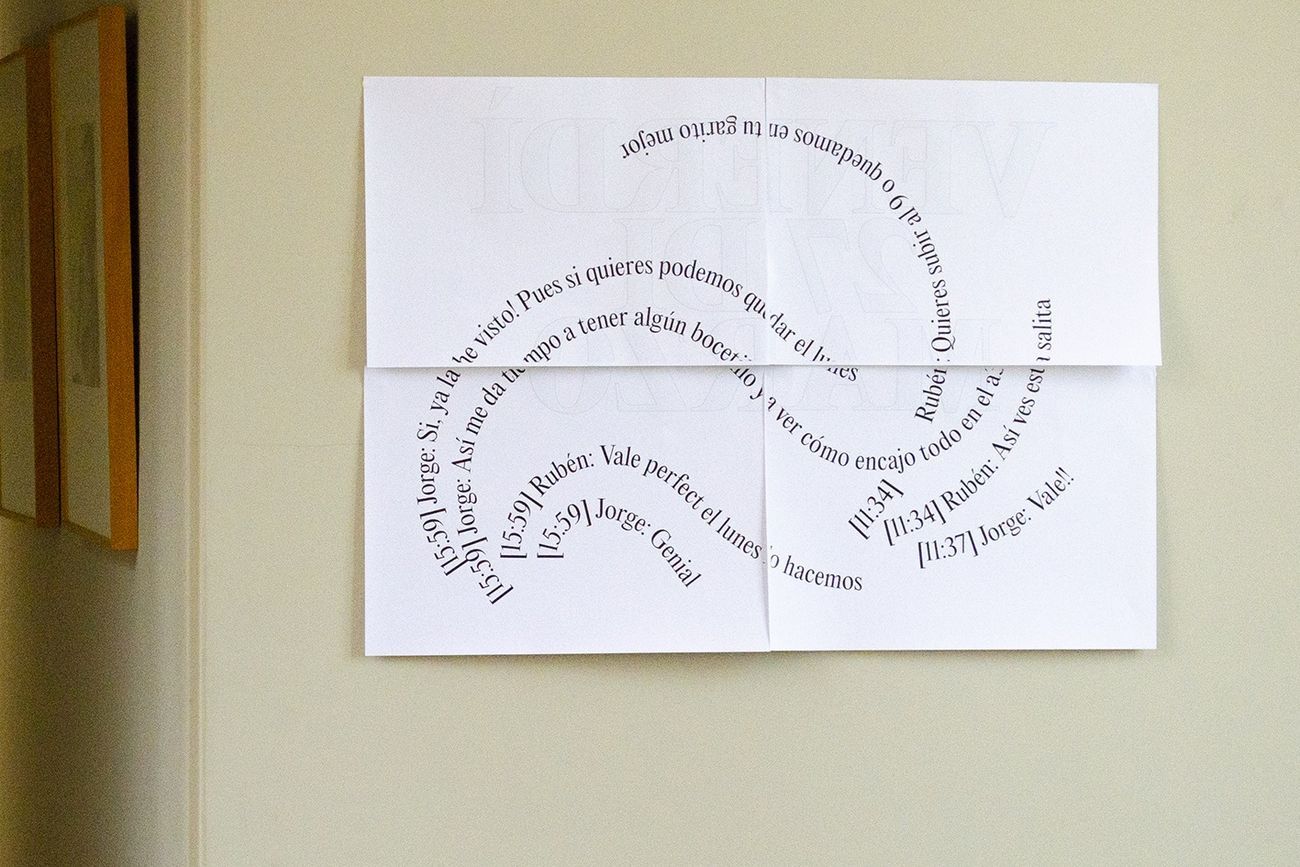 [15:59] Jorge: Si, ya la he visto! Pues si quieres podemos quedar el lunes
[15:59] Jorge: Así me da tiempo a tener algún bocetillo y a ver cómo encajo todo en el
[15:59] Rubén: Vale perfect el lunes lo hacemos
[15:59] Jorge: Genial
[11:34] Rubén: Quieres subir al 9 o quedamos en tu garito mejor
[11:34] Rubén: Así ves esta salita
[11:37] Jorge: Vale!!
VENERDÍ
27 DI
MARZO